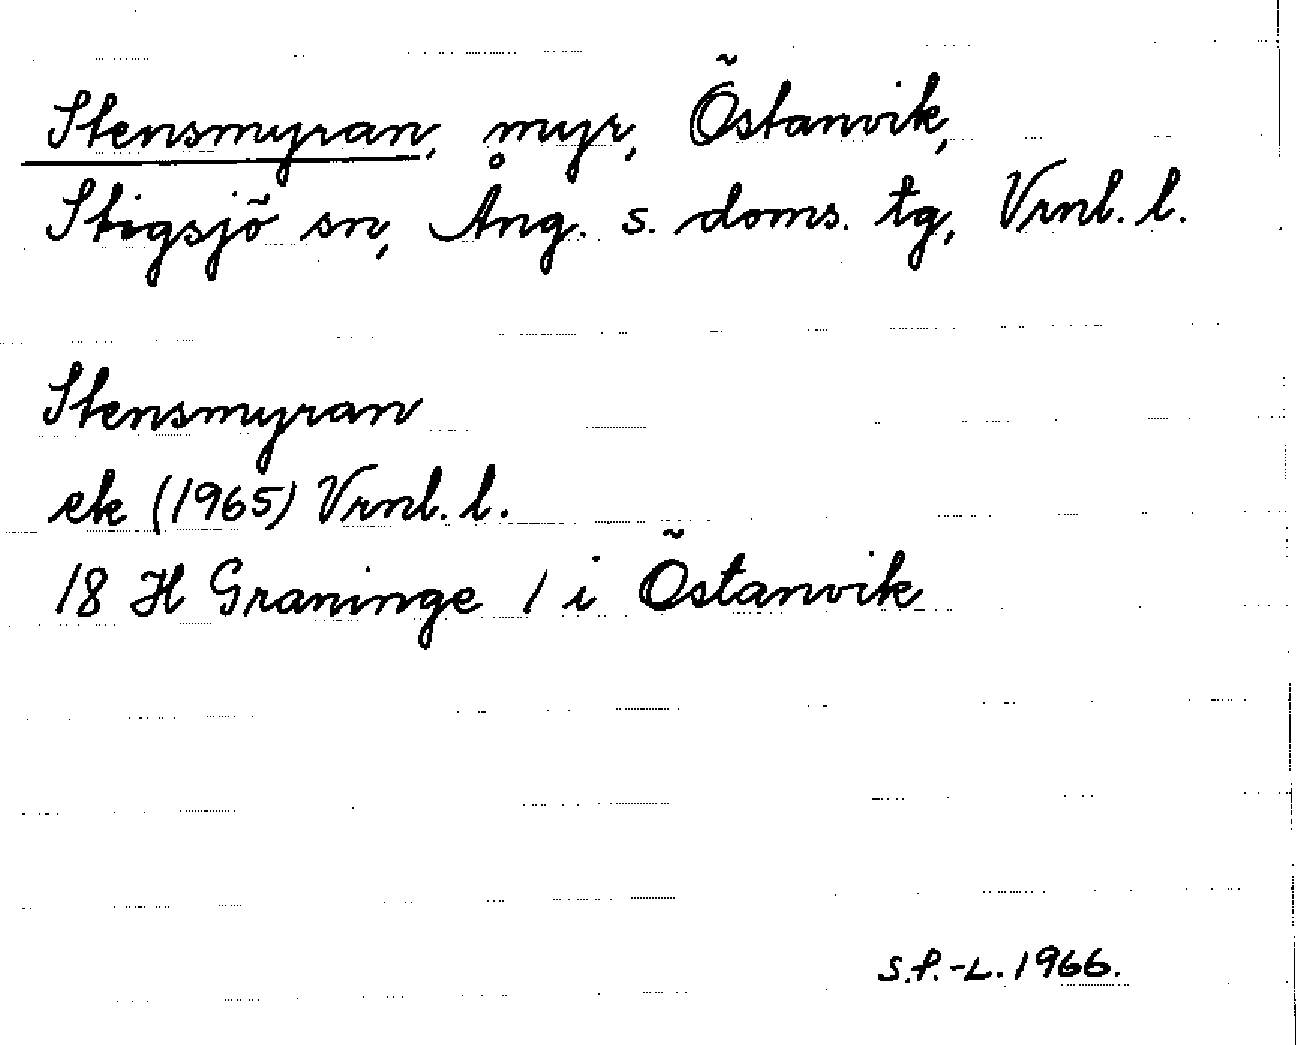 Stensmyran, myr, Östanvik,
Stigsjö sn, Ång. s. doms. tg, Vrnl. l.
Stensmyran
ek (1965) Vrnl. l.
18 H Graninge 1 i Östanvik
S.P.-L. 1966.